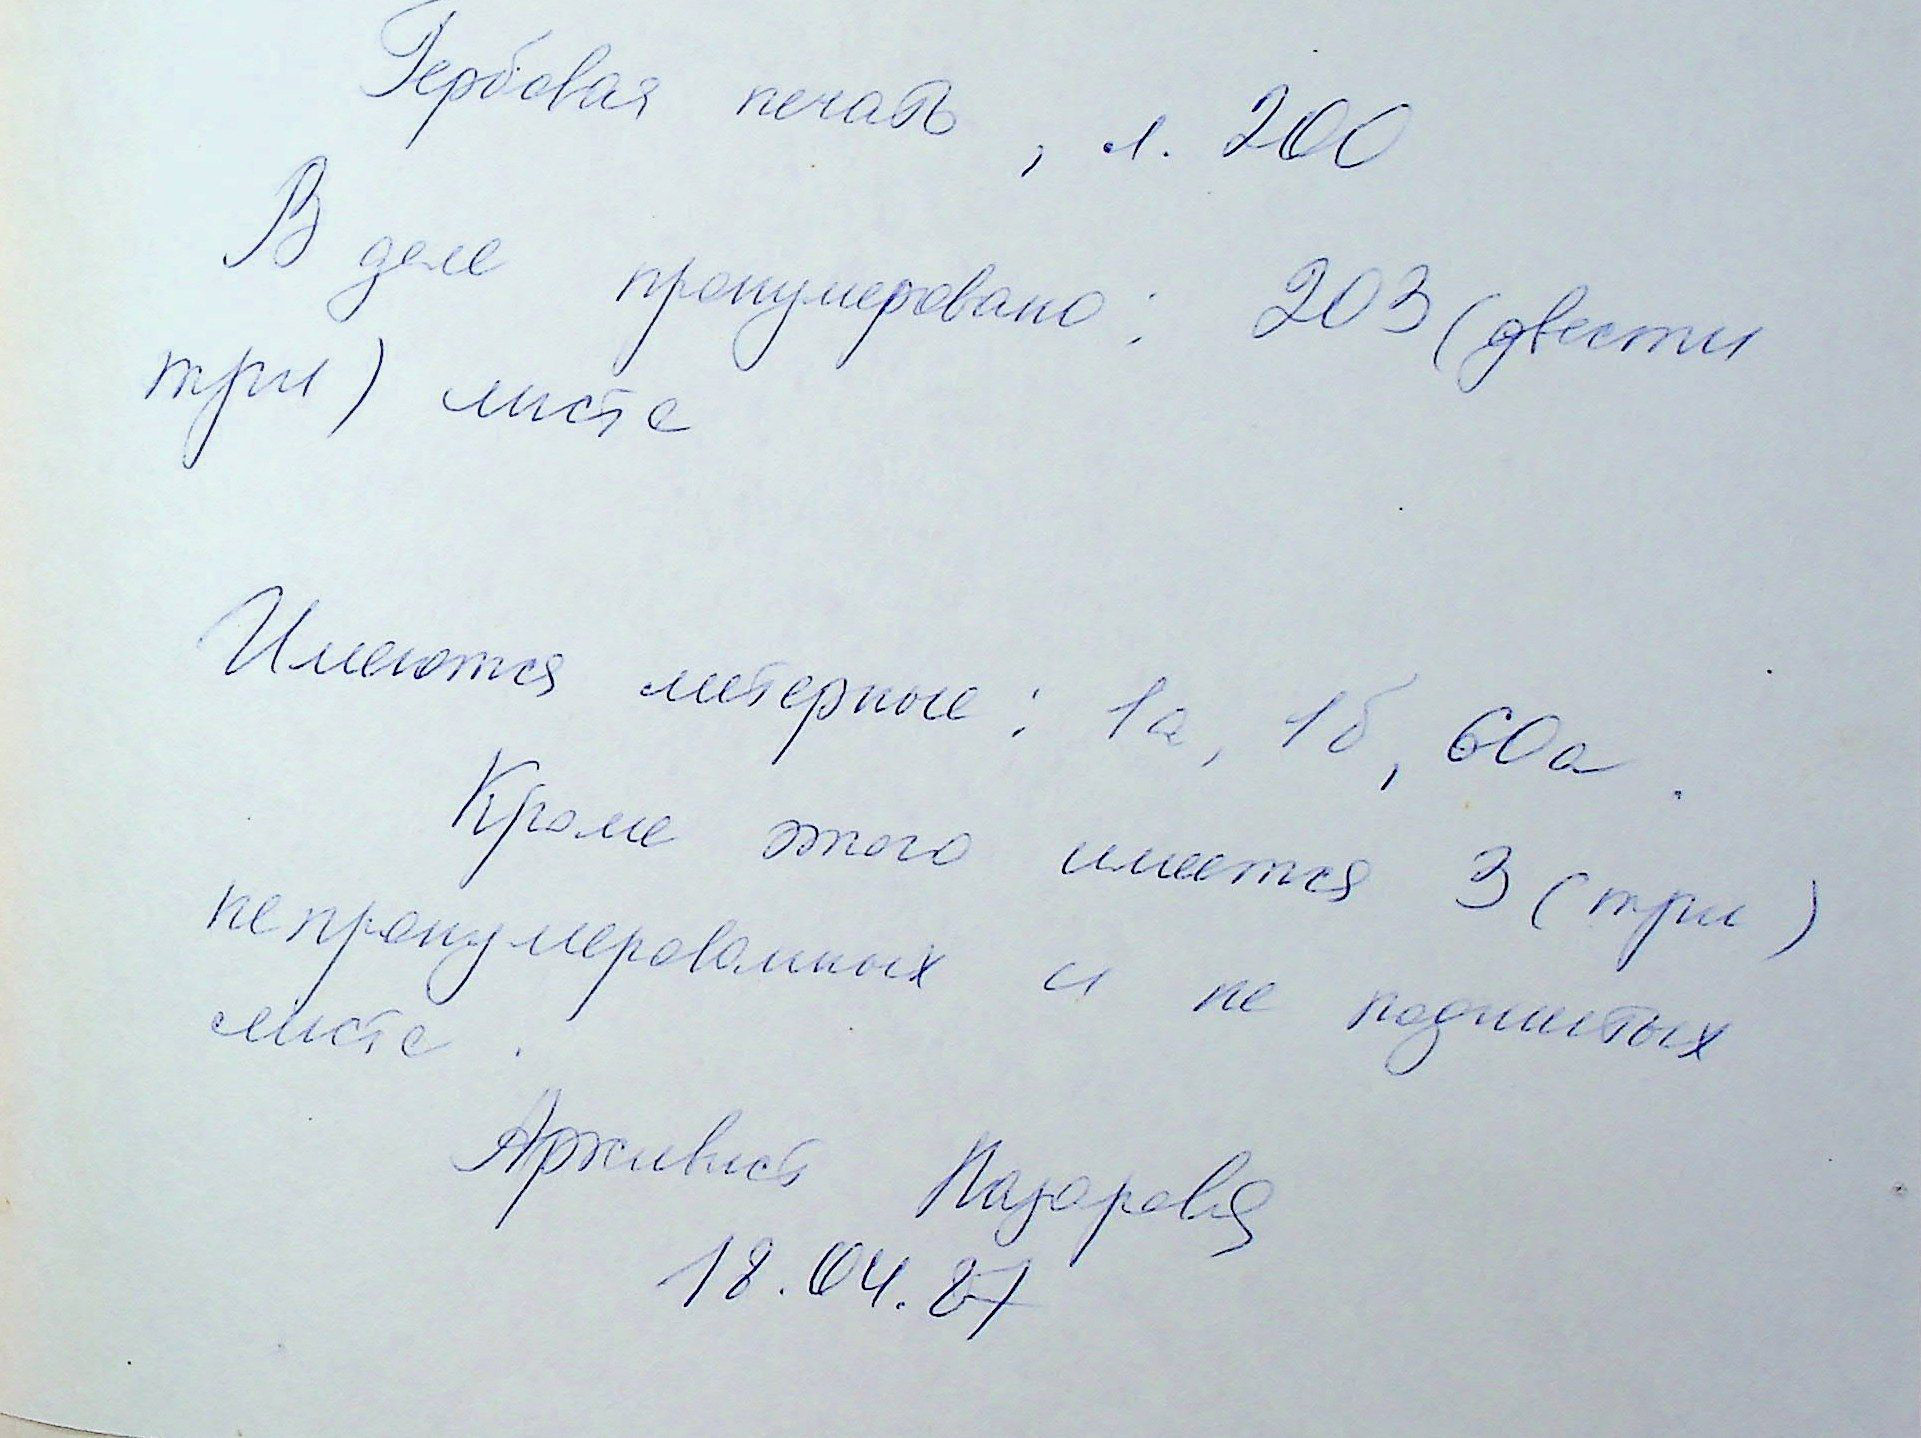 Гербовая печать, л. 200
В деле пронумеровано: 203 (двести
три) листа
Имеются литерные: 1а, 1б, 60а.
Кроме этого имеется 3 (три)
непронумерованных и не подшитых
листа.
Архивист Назарова
18.04.87